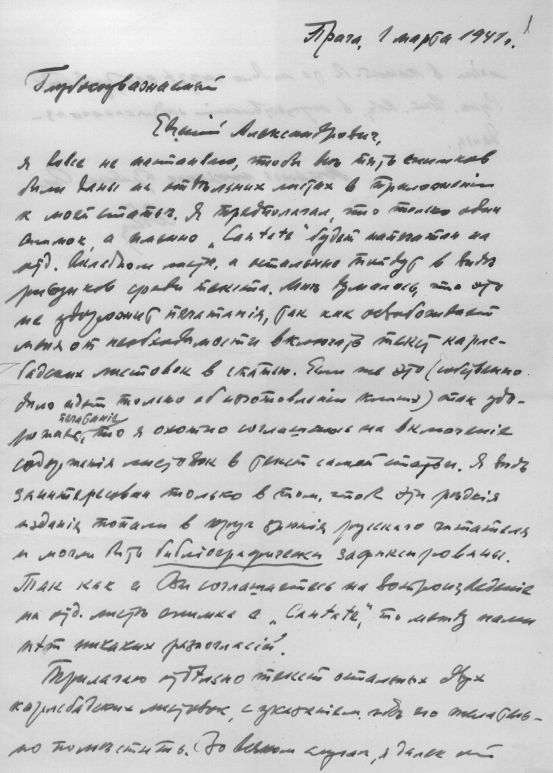 Прага, 1 марта 1941 г.
Глубокоуважаемый
Евгений Александрович,
я вовсе не настаиваю, чтобы все пять снимков
были даны на отдѣльных листах в приложеніи
к моей статьѣ. Я предполагал, что только один
снимок, а именно „Cantate" будет напечатан на
отд. вкладном листѣ, а остальные пойдут в видѣ
рисунков среди текста. Мнѣ думалось, что это
не удорожит печатанія, так как освобождает
меня от необходимости включать текст карлс-
бадских листовок в статью. Если же это (собственно
дѣло идет только об изготовленіи клише) так удо-
рожает печатаніе, то я охотно соглашаюсь на включеніе
содержанія листовок в текст самой статьи. Я вѣдь
заинтересован только в том, чтоб эти рѣдкія
изданія попали в круг зрѣнія русскаго читателя
и могли быть библіографически зафиксированы.
Так как и Вы соглашаетесь на воспроизведеніе
на отд. листѣ снимка с „Cantate", то между нами
нѣт никаких разногласій.
Прилагаю отдѣльно текст остальных двух
карлсбадских листовок, с указаніем, гдѣ его желатель-
но помѣстить. Во всяком случаѣ, я далек от